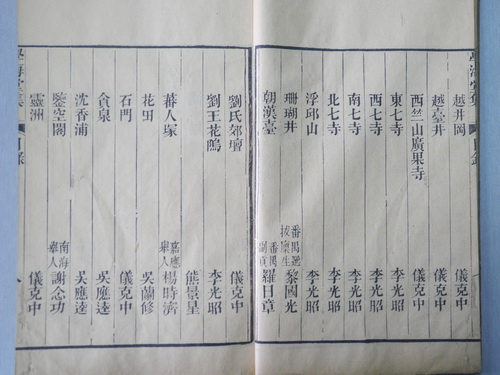 學海堂集 目錄
越井岡 儀克中
越臺井 儀克中
西竺山廣果寺 儀克中
東七寺 李光昭
西七寺 李光昭
南七寺 李光昭
北七寺 李光昭
浮邱山 李光昭
珊瑚井 番禺選拔廩生 黎國光
朝漢臺 番禺副貢 羅日章
劉氏郊壇 儀克中
劉王花塢 李光昭
熊景星
蕃人塚 嘉應舉人 楊時濟
花田 吳蘭修
石門 儀克中
貪泉 吳應逵
沈香浦 吳應逵
鑒空閣 南海舉人 謝念功
靈洲 儀克中
學海堂集 目錄 八